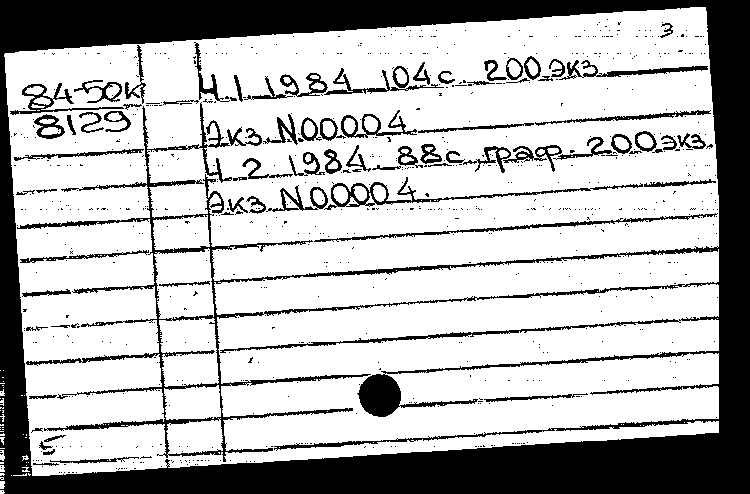 3.
84-50к Ч 1 1984 104с. 200экз
8129 Экз N00004
Ч 2 1984. 88с, граф. 200экз.
Экз N00004.
5